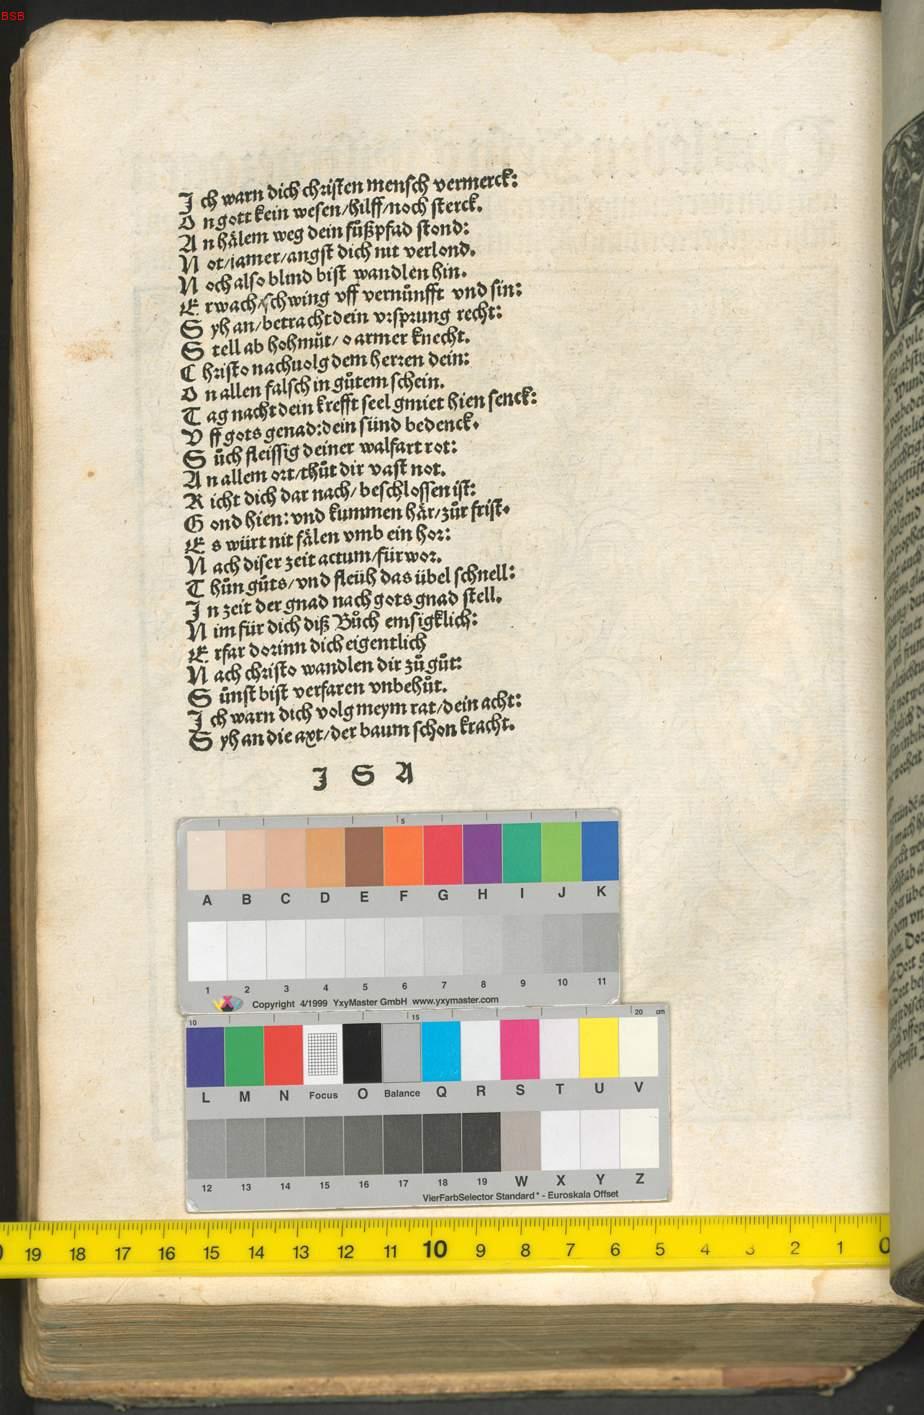 BSB
J ch warn dich christen mensch vermerck:
O n gott kein wesen/hilff/noch sterck.
A n hålem weg dein fůßpfad stond:
N ot/iamer/angst dich nit verlond.
N och also blind bist wandlen hin.
E rwach/schwing vff vernůnfft vnd sin:
S yh an/betracht dein vrsprung recht:
S tell ab hohmůt/o armer knecht.
C hristo nachuolg dem herren dein:
O n allen falsch in gůtem schein.
T ag nacht dein krefft seel gmiet hien senck:
V ff gots genad:dein sünd bedenck.
S ůch fleissig deiner walfart rot:
A n allem ort/thůt dir vast not.
R icht dich dar nach/beschlossen ist:
G ond hien:vnd kummen hår/zůr frist.
E s würt nit fålen vmb ein hor:
N ach diser zeit actum/für wor.
T hůn gůts/vnd fleüh das übel schnell:
J n zeit der gnad nach gots gnad stell.
N im für dich diß Bůch emsigklich:
E rfar dorinn dich eigentlich
N ach christo wandlen dir zů gůt:
S ůnst bist verfaren vnbehůt.
J ch warn dich volg meym rat/dein acht:
S yh an die axt/der baum schon kracht.
J S A
5
A B C D E F G H I J K
1 2 3 4 5 6 7 8 9 10 11
Copyright 4/1999 YxyMaster GmbH www.yxymaster.com
10 15 20 cm
L M N Focus O Balance Q R S T U V
12 13 14 15 16 17 18 19 W X Y Z
VierFarbSelector Standard* - Euroskala Offset
19 18 17 16 15 14 13 12 11 10 9 8 7 6 5 4 3 2 1 0